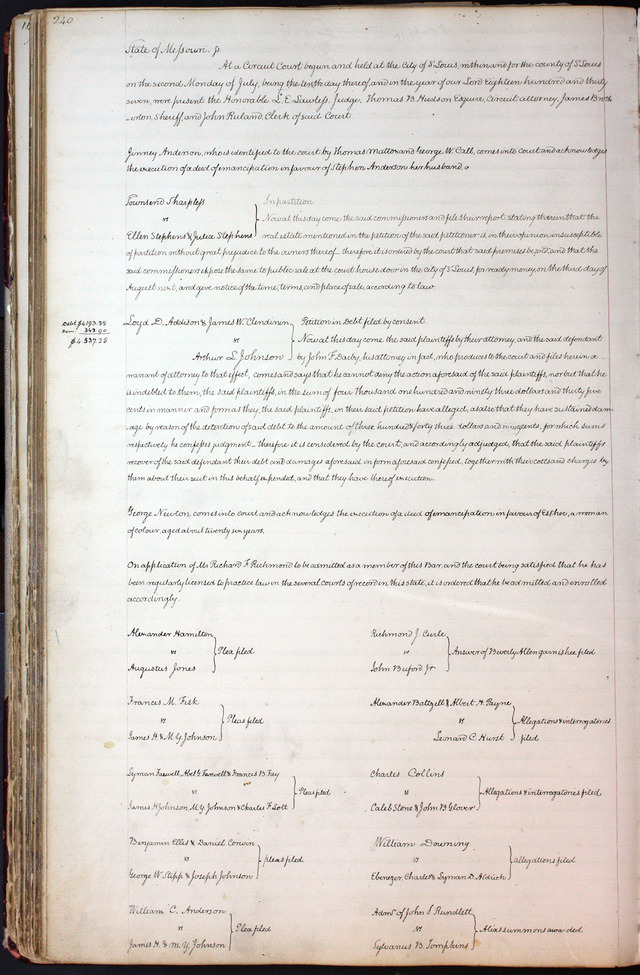 240
State of Missouri. ss.
At a Circuit Court begun and held at the City of St Louis, within and for the county of St Louis
on the second Monday of July, being the tenth day thereof, and in the year of our Lord Eighteen hundred and thirty
seven, were present the Honorable L. E. Lawless, Judge, Thomas B. Hudson Esquire, Circuit attorney, James Broth
-erton, Sheriff, and John Ruland, Clerk of said Court.
Jinney Anderson, who is identified to the court by Thomas Mattox and George W. Call, comes into Court and acknowledges
the execution of a deed of emancipation in favour of Stephen Anderson her husband.
Townsend Sharpless
vs
Ellen Stephens & Julia Stephens
In partition
Now at this day come the said commissioners and file their report, stating therein that the
real estate mentioned in the petition of the said petitioner is, in their opinion insusceptible
of partition without great prejudice to the owners thereof - therefore it is ordered by the court that said premises be sold, and that the
said commissioners expose the same to public sale at the court house door in the city of St Louis, for ready money, on the third day of
August next, and give notice of the time, terms, and place of sale, according to law.
Debt $4193.35
Dam 343.90
$4.537.25
Loyd D. Addison & James W. Clendinin
vs
Arthur L. Johnson
Petition in Debt filed by consent.
Now at this day come the said plaintiffs by their attorney, and the said defendant
by John F. Darby, his attorney in fact, who produces to the court and files herein a
warrant of attorney to that effect, comes and says that he cannot deny the action aforesaid of the said plaintiffs, nor but that he
is indebted to them, the said plaintiffs, in the sum of four Thousand one hundred and ninety three dollars and thirty five
cents in manner and form as they, the said plaintiffs, in their said petition have alleged, as also that they have sustained dam-
age by reason of the detention of said debt to the amount of three hundred & forty three dollars and ninety cents, for which sums
respectively he confesses judgment - therefore it is considered by the court, and accordingly adjudged, that the said plaintiffs
recover of the said defendant their debt and damages aforesaid in form aforesaid confessed, together with their costs and charges by
them about their suit in this behalf expended, and that they have thereof execution.
George Newton comes into court and acknowledges the execution of a deed of emancipation in favour of Esther, a woman
of colour, aged about twenty six years.
On application of Mr Richard F. Richmond to be admitted as a member of this Bar, and the court being satisfied that he has
been regularly licensed to practice law in the several courts of record in this state, it is ordered that he be admitted and enrolled
accordingly.
Alexander Hamilton
vs
Augustus Jones
Plea filed
Richmond J. Curle
vs
John Buford Jr
Answer of Beverly Allen garnishee filed
Francis M. Fisk
vs
James H. & M. Y. Johnson
Pleas filed
Alexander Baltzell & Albert H. Payne
vs
Leonard C. Hurst
Allegations & interrogatories
filed
Lyman Farwell, Abel G Farwell & Francis B. Fay
vs
James H Johnson, M. Y. Johnson & Charles F. Lott
Pleas filed
Charles Collins
vs
Caleb Stone & John B. Glover
Allegations & interrogatories filed
Benjamin Ellis & Daniel Corwin
vs
George W. Stipp & Joseph Johnson
pleas filed
William Downing
vs
Ebenezer, Charles & Lyman D. Aldrich
allegations filed
William C. Anderson
vs
James H. & M. Y Johnson
Plea filed
Admr of John S Rundlett
vs
Sylvanus B. Tompkins
Alias summons awarded